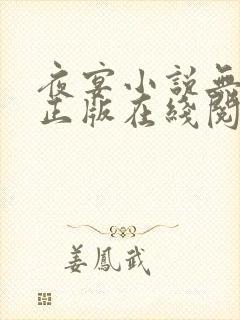 夜宴小說無
正版在綫閱
姜鳳武